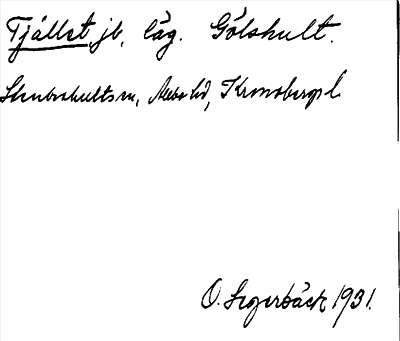 Tjället, jb, läg. Gölshult.
Stenbrohults sn, Allbo hd, Kronobergs l
O. Segerbäck 1931.